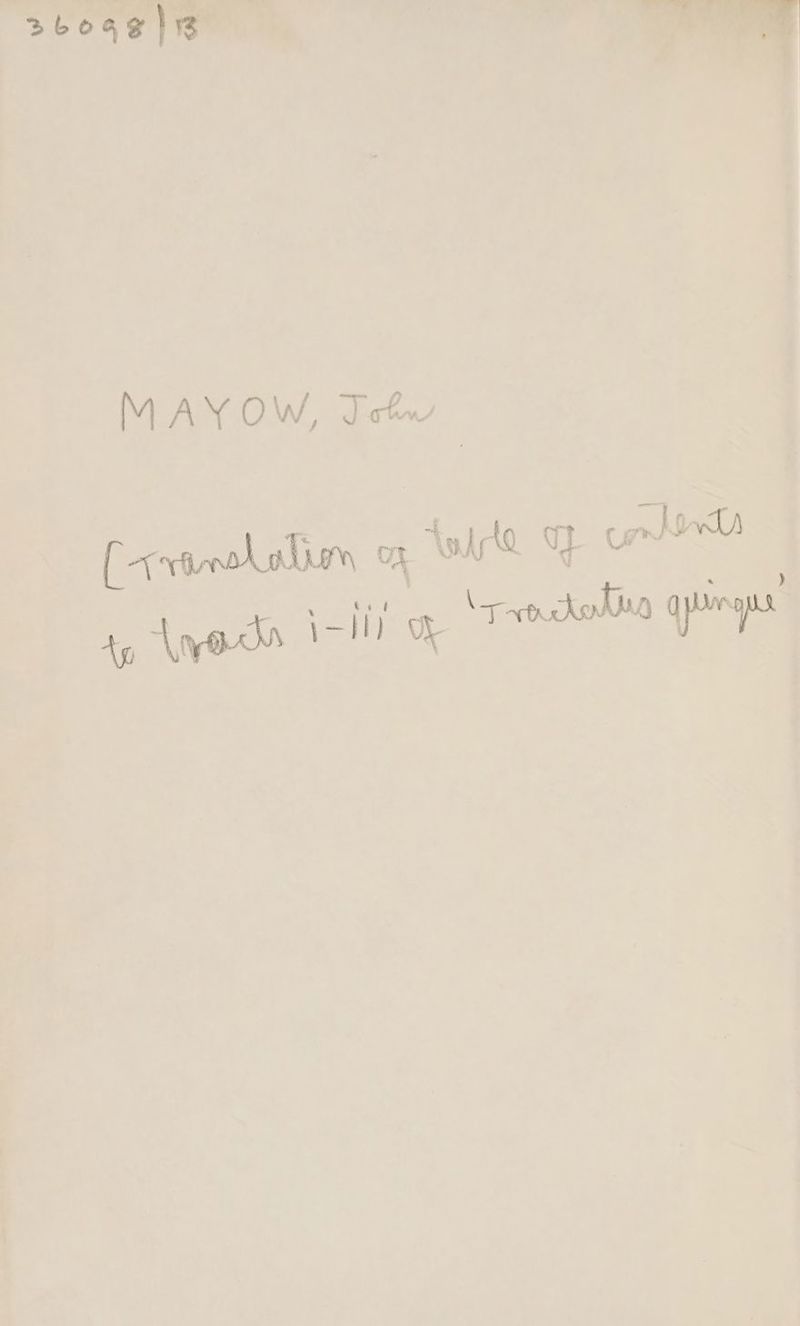 36098|B
MAYOW, John
[Translation of table of contents
to tracts i-iii of 'Tractatus quinque'